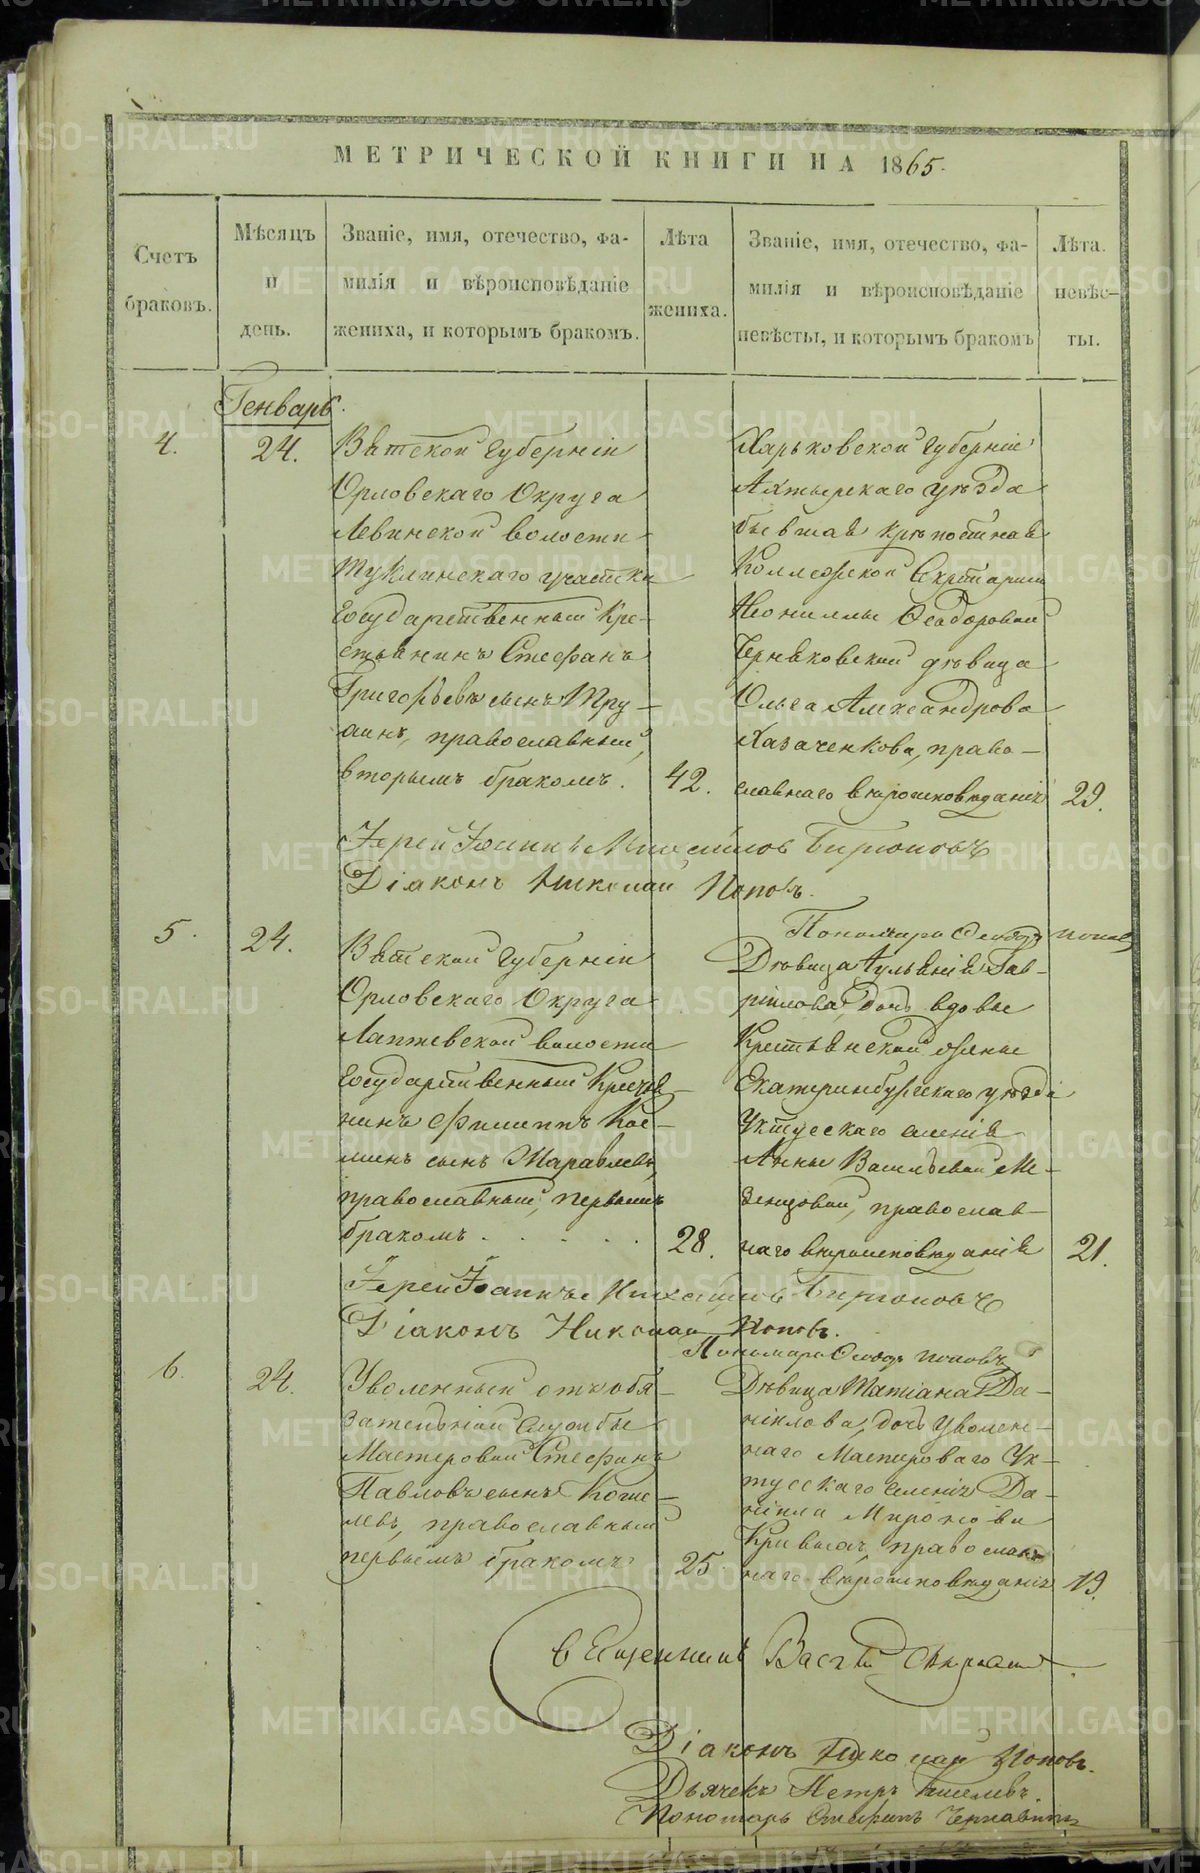 МЕТРИЧЕСКОЙ КНИГИ НА 1865.
Счетъ браковъ.
Мѣсяцъ и день.
Званіе, имя, отечество, фа-
милія и вѣроисповѣданіе
жениха, и которымъ бракомъ.
Лѣта жениха.
Званіе, имя, отечество, фа-
милія и вѣроисповѣданіе
невѣсты, и которымъ бракомъ
Лѣта невѣс-
ты.
Генварь.
4.
24.
Вятской губерніи
Орловскаго Округа
Левинской волости
Туклинскаго участка
Государственный Кре-
стьянинъ Стефанъ
Григорьевъ сынъ Тру-
хинъ, православный,
вторымъ бракомъ.
42.
Харьковской губерніи
Ахтырскаго уѣзда
бывшая крѣпостная
Коллежской Секретарши
Неониллы Ѳеодоровой
Чернявской дѣвица
Ольга Александрова
Казаченкова, право-
славнаго вѣроисповѣданія
29.
Іерей Іоаннъ Михайловъ Бирюковъ
Діаконъ Николай Поповъ.
Пономарь Ѳеодоръ Поповъ
5.
24.
Вятской губерніи
Орловскаго Округа
Лаптевской волости
Государственный Крестья-
нинъ Филиппъ Кос-
минъ сынъ Журавлевъ,
православный, первымъ
бракомъ . . . . .
28.
Дѣвица Іульянія Гав-
ріилова, дочь вдовы
Крестьянской жены
Екатеринбургскаго уѣзда
Уктусскаго селенія
Анны Васильевой Ме-
зенцовой, православ-
наго вѣроисповѣданія
21.
Іерей Іоаннъ Михайловъ Бирюковъ
Діаконъ Николай Поповъ.
Пономарь Ѳеодоръ Поповъ
6.
24.
Уволенный отъ обя-
зательной службы
Мастеровой Стефанъ
Павловъ сынъ Коше-
левъ, православный
первымъ бракомъ
25.
Дѣвица Татіана Да-
ніилова, дочь уволен-
наго Мастероваго Ук-
тусскаго селенія Да-
ніила Миронова
православ-
наго вѣроисповѣданія
19.
Священникъ
Діаконъ Николай Поповъ.
Дьячекъ Петръ Киселевъ.
Пономарь Стефанъ Чернавинъ
METRIKI.GASO-URAL.RU